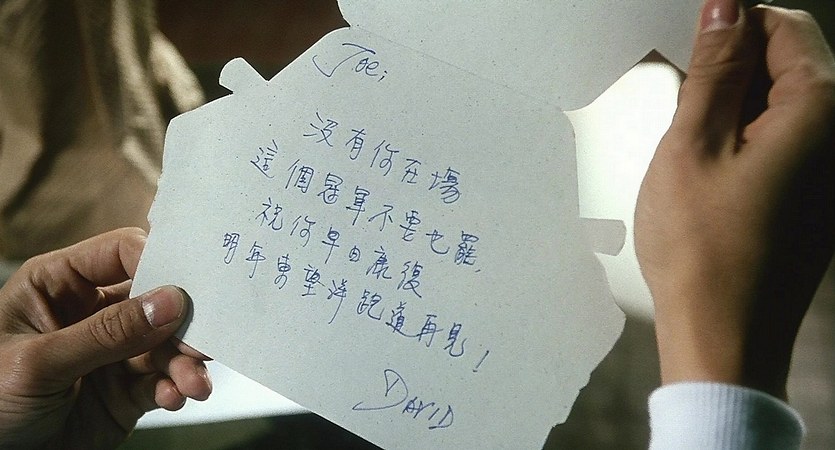 Joe,
沒有你在場
這個冠軍不要也罷,
祝你早日康復
明年東望洋跑道再見!
DAVID